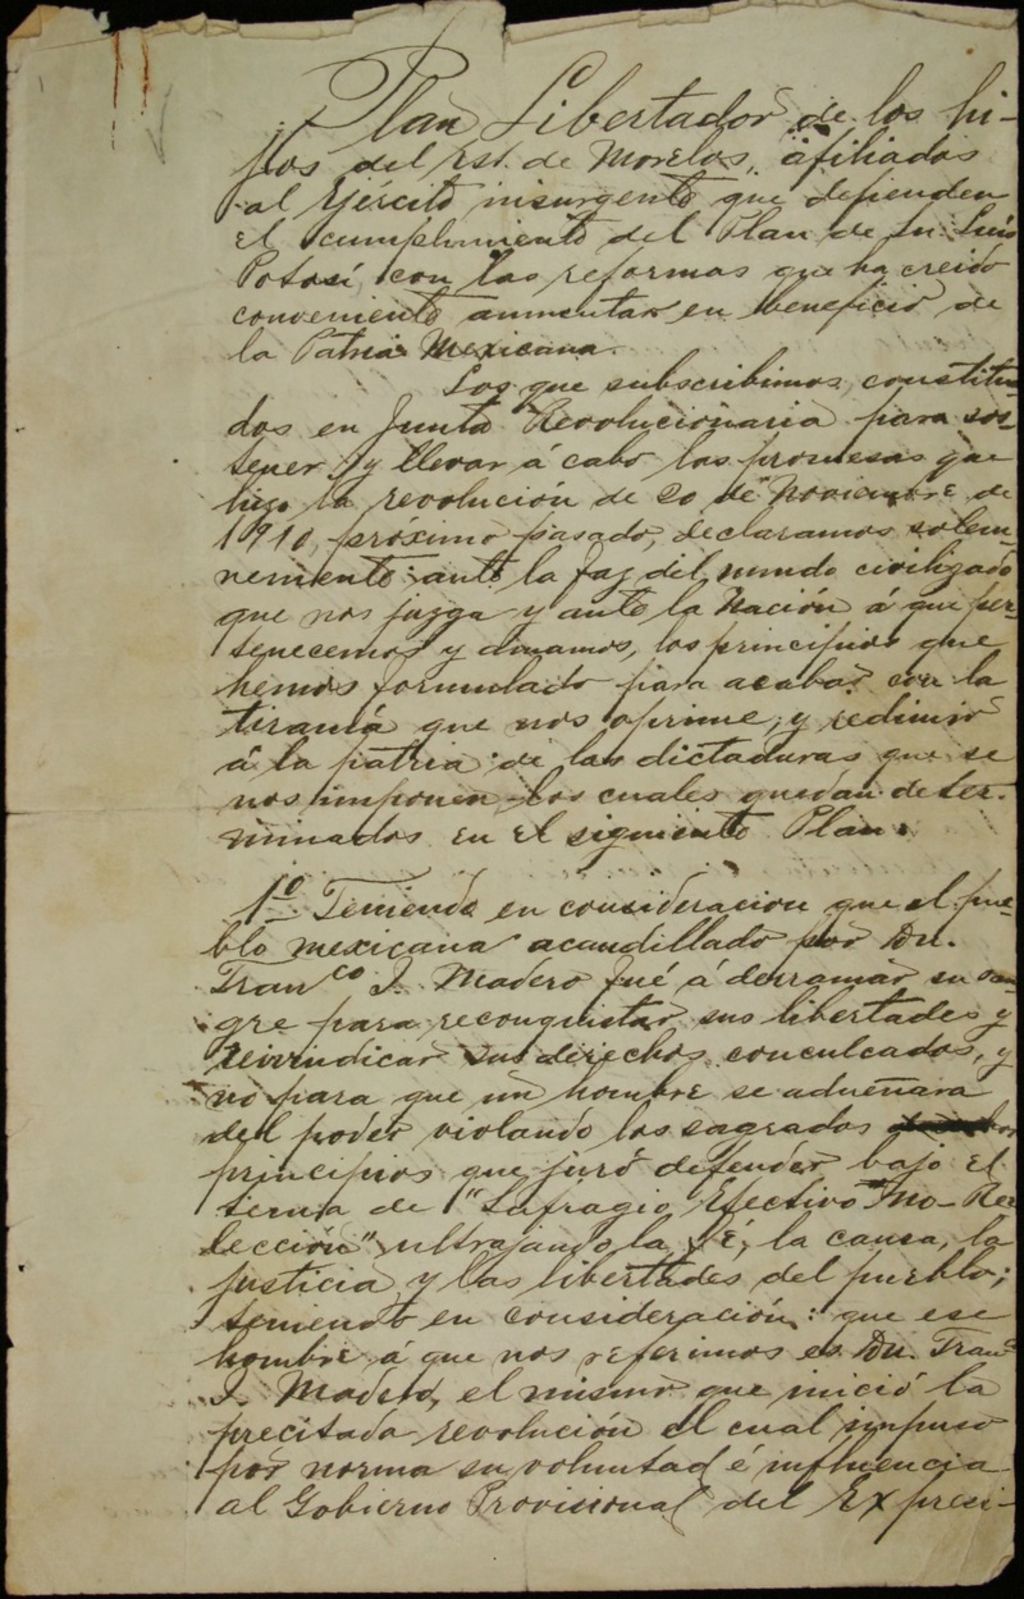 Plan Libertador de los hi-
jos del Est. de Morelos, afiliados
al Ejército insurgente que defienden
el cumplimiento del Plan de Sn. Luis
Potosí, con las reformas que ha creido
conveniente aumentar en beneficio de
la Patria Mexicana.
Los que subscribimos, constitui-
dos en Junta Revolucionaria para sos-
tener y llevar á cabo las promesas que
hizo la revolución de 20 de Noviembre de
1910, próximo pasado, declaramos solem-
nemente ante la faz del mundo civilizado
que nos juzga y ante la Nación á que per-
tenecemos y amamos, los principios que
hemos formulado para acabar con la
tiranía que nos oprime, y redimir
á la patria de las dictaduras que se
nos imponen los cuales quedan deter-
minados en el siguiente Plan.
1º Teniendo en consideracion que el pue-
blo mexicana acaudillado por Dn.
Franco I. Madero fué á derramar su san-
gre para reconquistar sus libertades y
reivindicar sus derechos conculcados, y
no para que un hombre se adueñara
del poder violando los sagrados
principios que juró defender bajo el
tema de "Sufragio Efectivo No-Ree
lección" ultrajando la fé, la causa, la
justicia y las libertades del pueblo;
teniendo en consideración: que ese
hombre á que nos referimos es Dn. Franco
I. Madero, el mismo que inició la
precitada revolución el cual impuso
por norma su voluntad é influencia
al Gobierno Provisional del Ex presi-